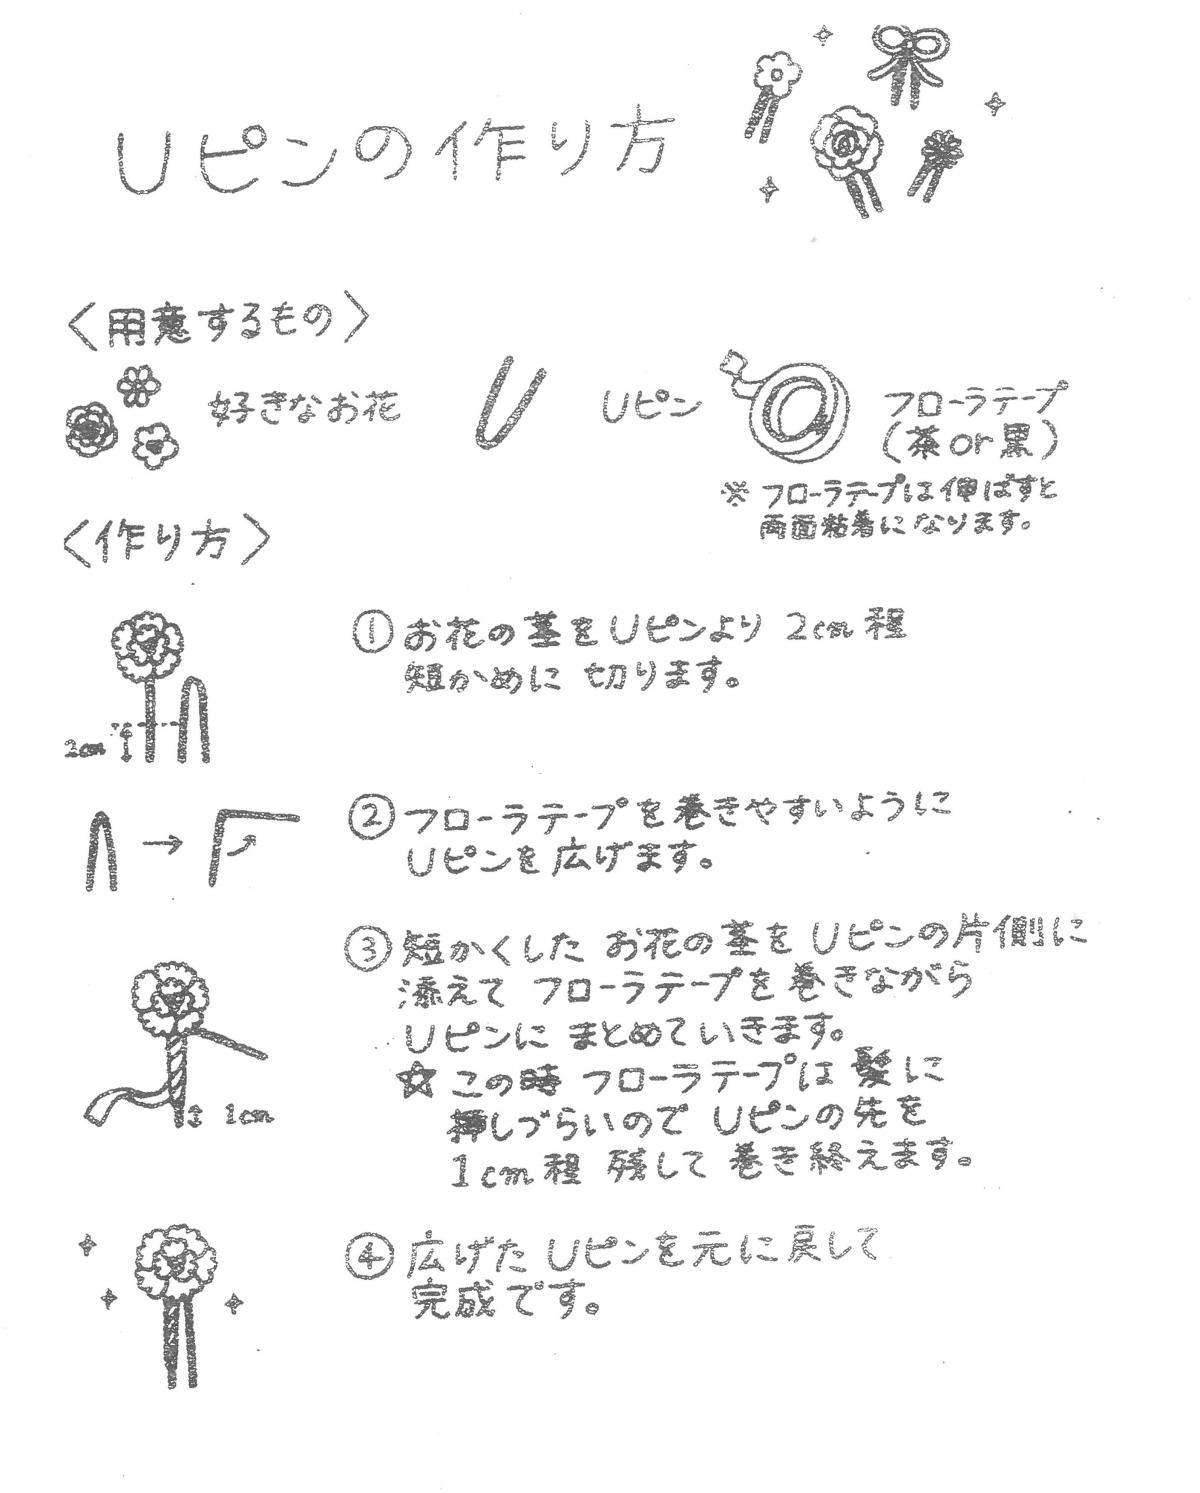 Uピンの作り方
〈用意するもの〉
好きなお花
Uピン
フローラテープ
(茶or黒)
※フローラテープは伸ばすと
両面粘着になります。
〈作り方〉
①お花の茎をUピンより2cm程
短かめに切ります。
2cm
②フローラテープを巻きやすいように
Uピンを広げます。
③短かくしたお花の茎をUピンの片側に
添えてフローラテープを巻きながら
Uピンにまとめていきます。
☆この時フローラテープは髪に
挿しづらいのでUピンの先を
1cm程残して巻き終えます。
1cm
④広げたUピンを元に戻して
完成です。